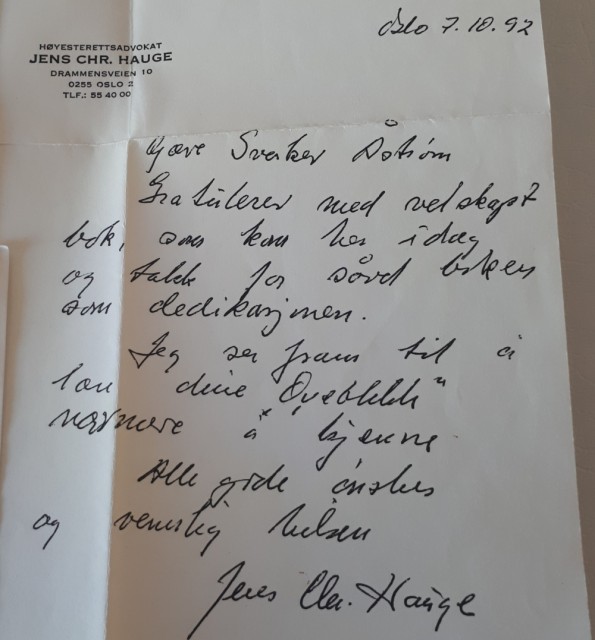 HØYESTERETTSADVOKAT
JENS CHR. HAUGE
DRAMMENSVEIEN 10
0255 OSLO 2
TLF.: 55 40 00
Oslo 7.10.92
Gjæve Sverker Åström
Gratulerer med velskapt
bok, som kom her i dag
og takk for såvel boken
som dedikasjonen.
Jeg ser fram til å
lære dine "Øyeblikk"
nærmere å kjenne.
Alle gode ønsker
og vennlig hilsen
Jens Chr. Hauge